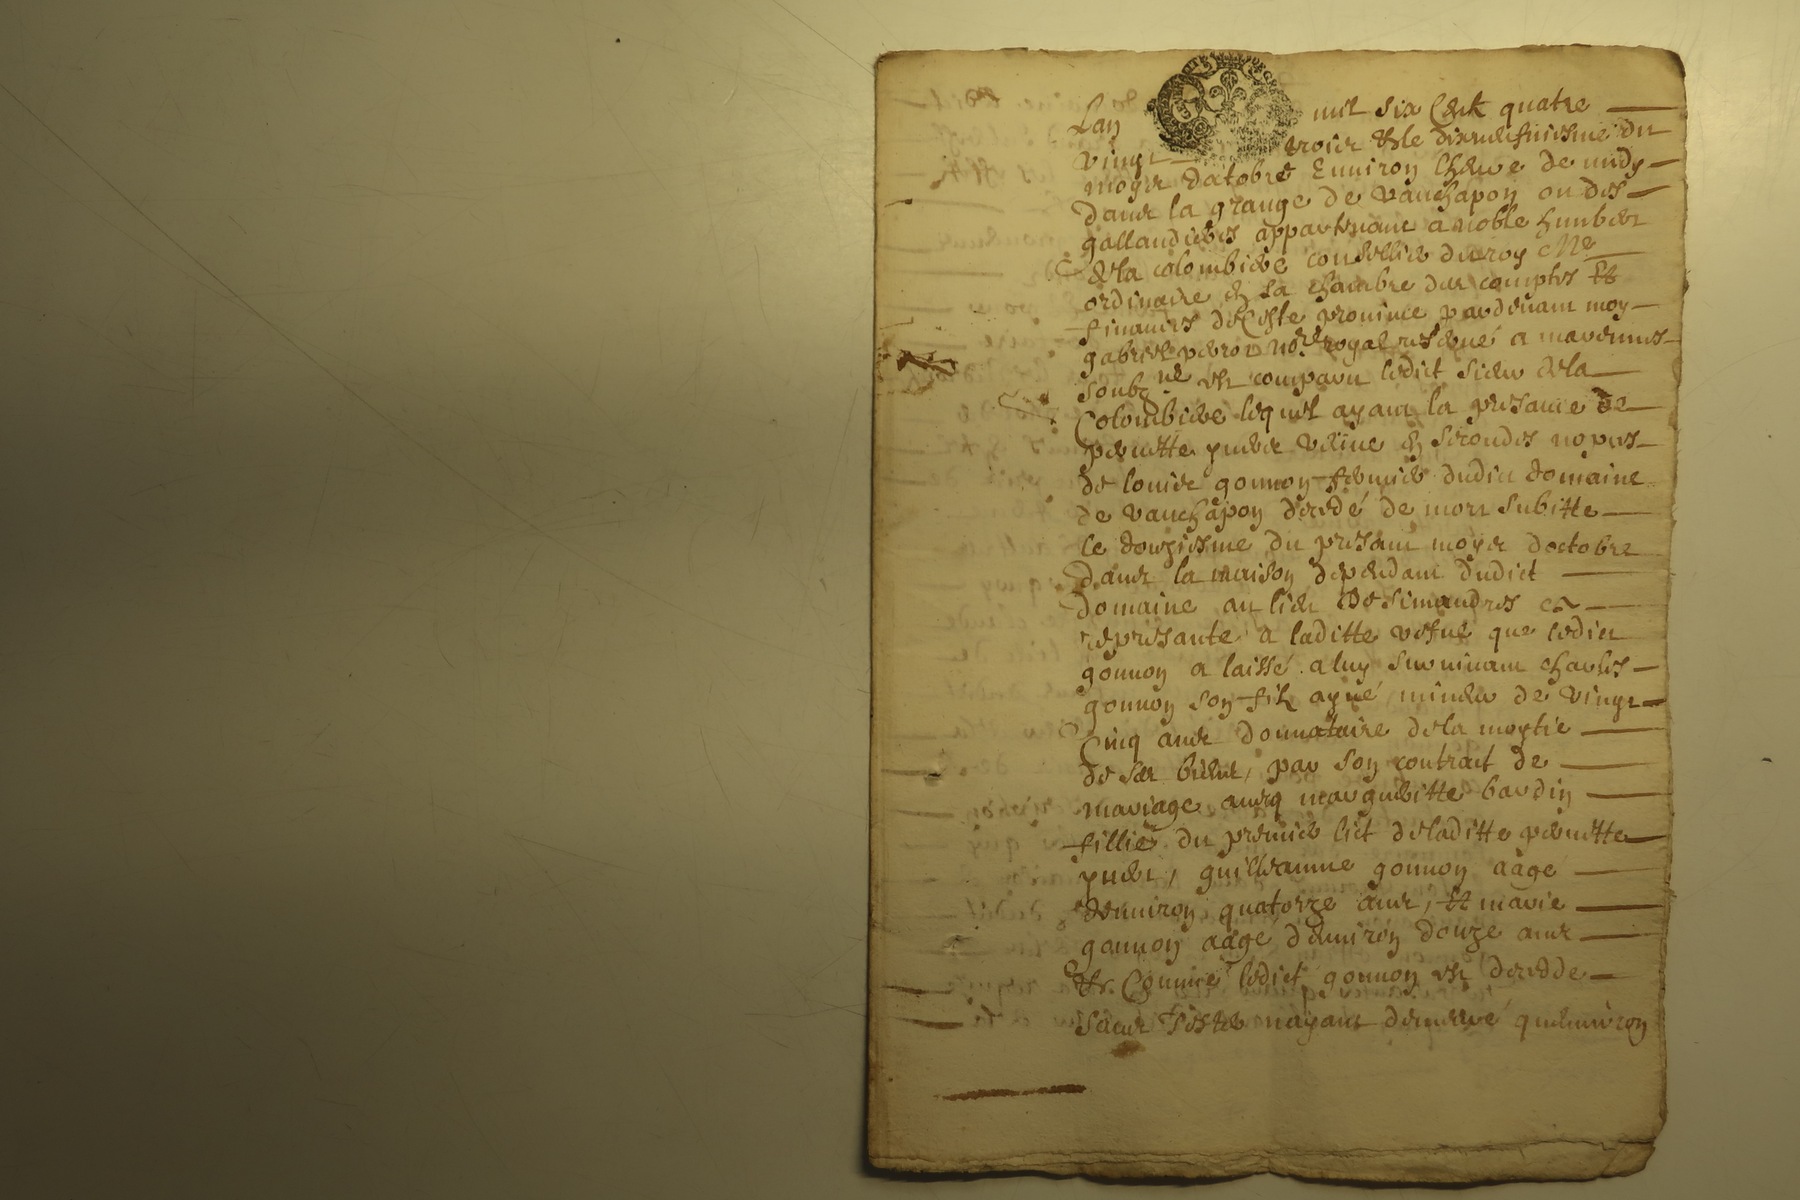 Lan mil six Cent quatre
vingt trois et le dixneufviesme du
moys doctobre Environ Lheure de midy
dans la grange de vauchapon ou des
gallandieres appartenant a noble humbert
de la colombiere conseillier du roy Me
ordinaire en sa chambre des comptes et
finances de Ceste province pardevant moy
gabriel perot nore royal reservé a
soubzne est comparu ledict sieur de la
Colombiere lequel ayant la presance de
pernette veuve en secondes nopces
de louis gonnon fermier dudict domaine
de vauchapon decedé de mort subitte
le douziesme du presant moys doctobre
dans la maison dependant dudict
domaine au lieu de simandres a
represante a laditte vefve que ledict
gonnon a laissé a luy survivant charles
gonnon son filz ayné mineur de vingt
Cinq ans donnataire de la moytie
de ses biens, par son contract de
mariage avecq margueritte bardin
fillie du premier lict de laditte pernette
guilleaume gonnon aagé
denviron quatorze ans, et marie
gonnon aagé denviron douze ans
Et Comme ledict gonnon est decedde
sans tester nayant demeuré quenviron